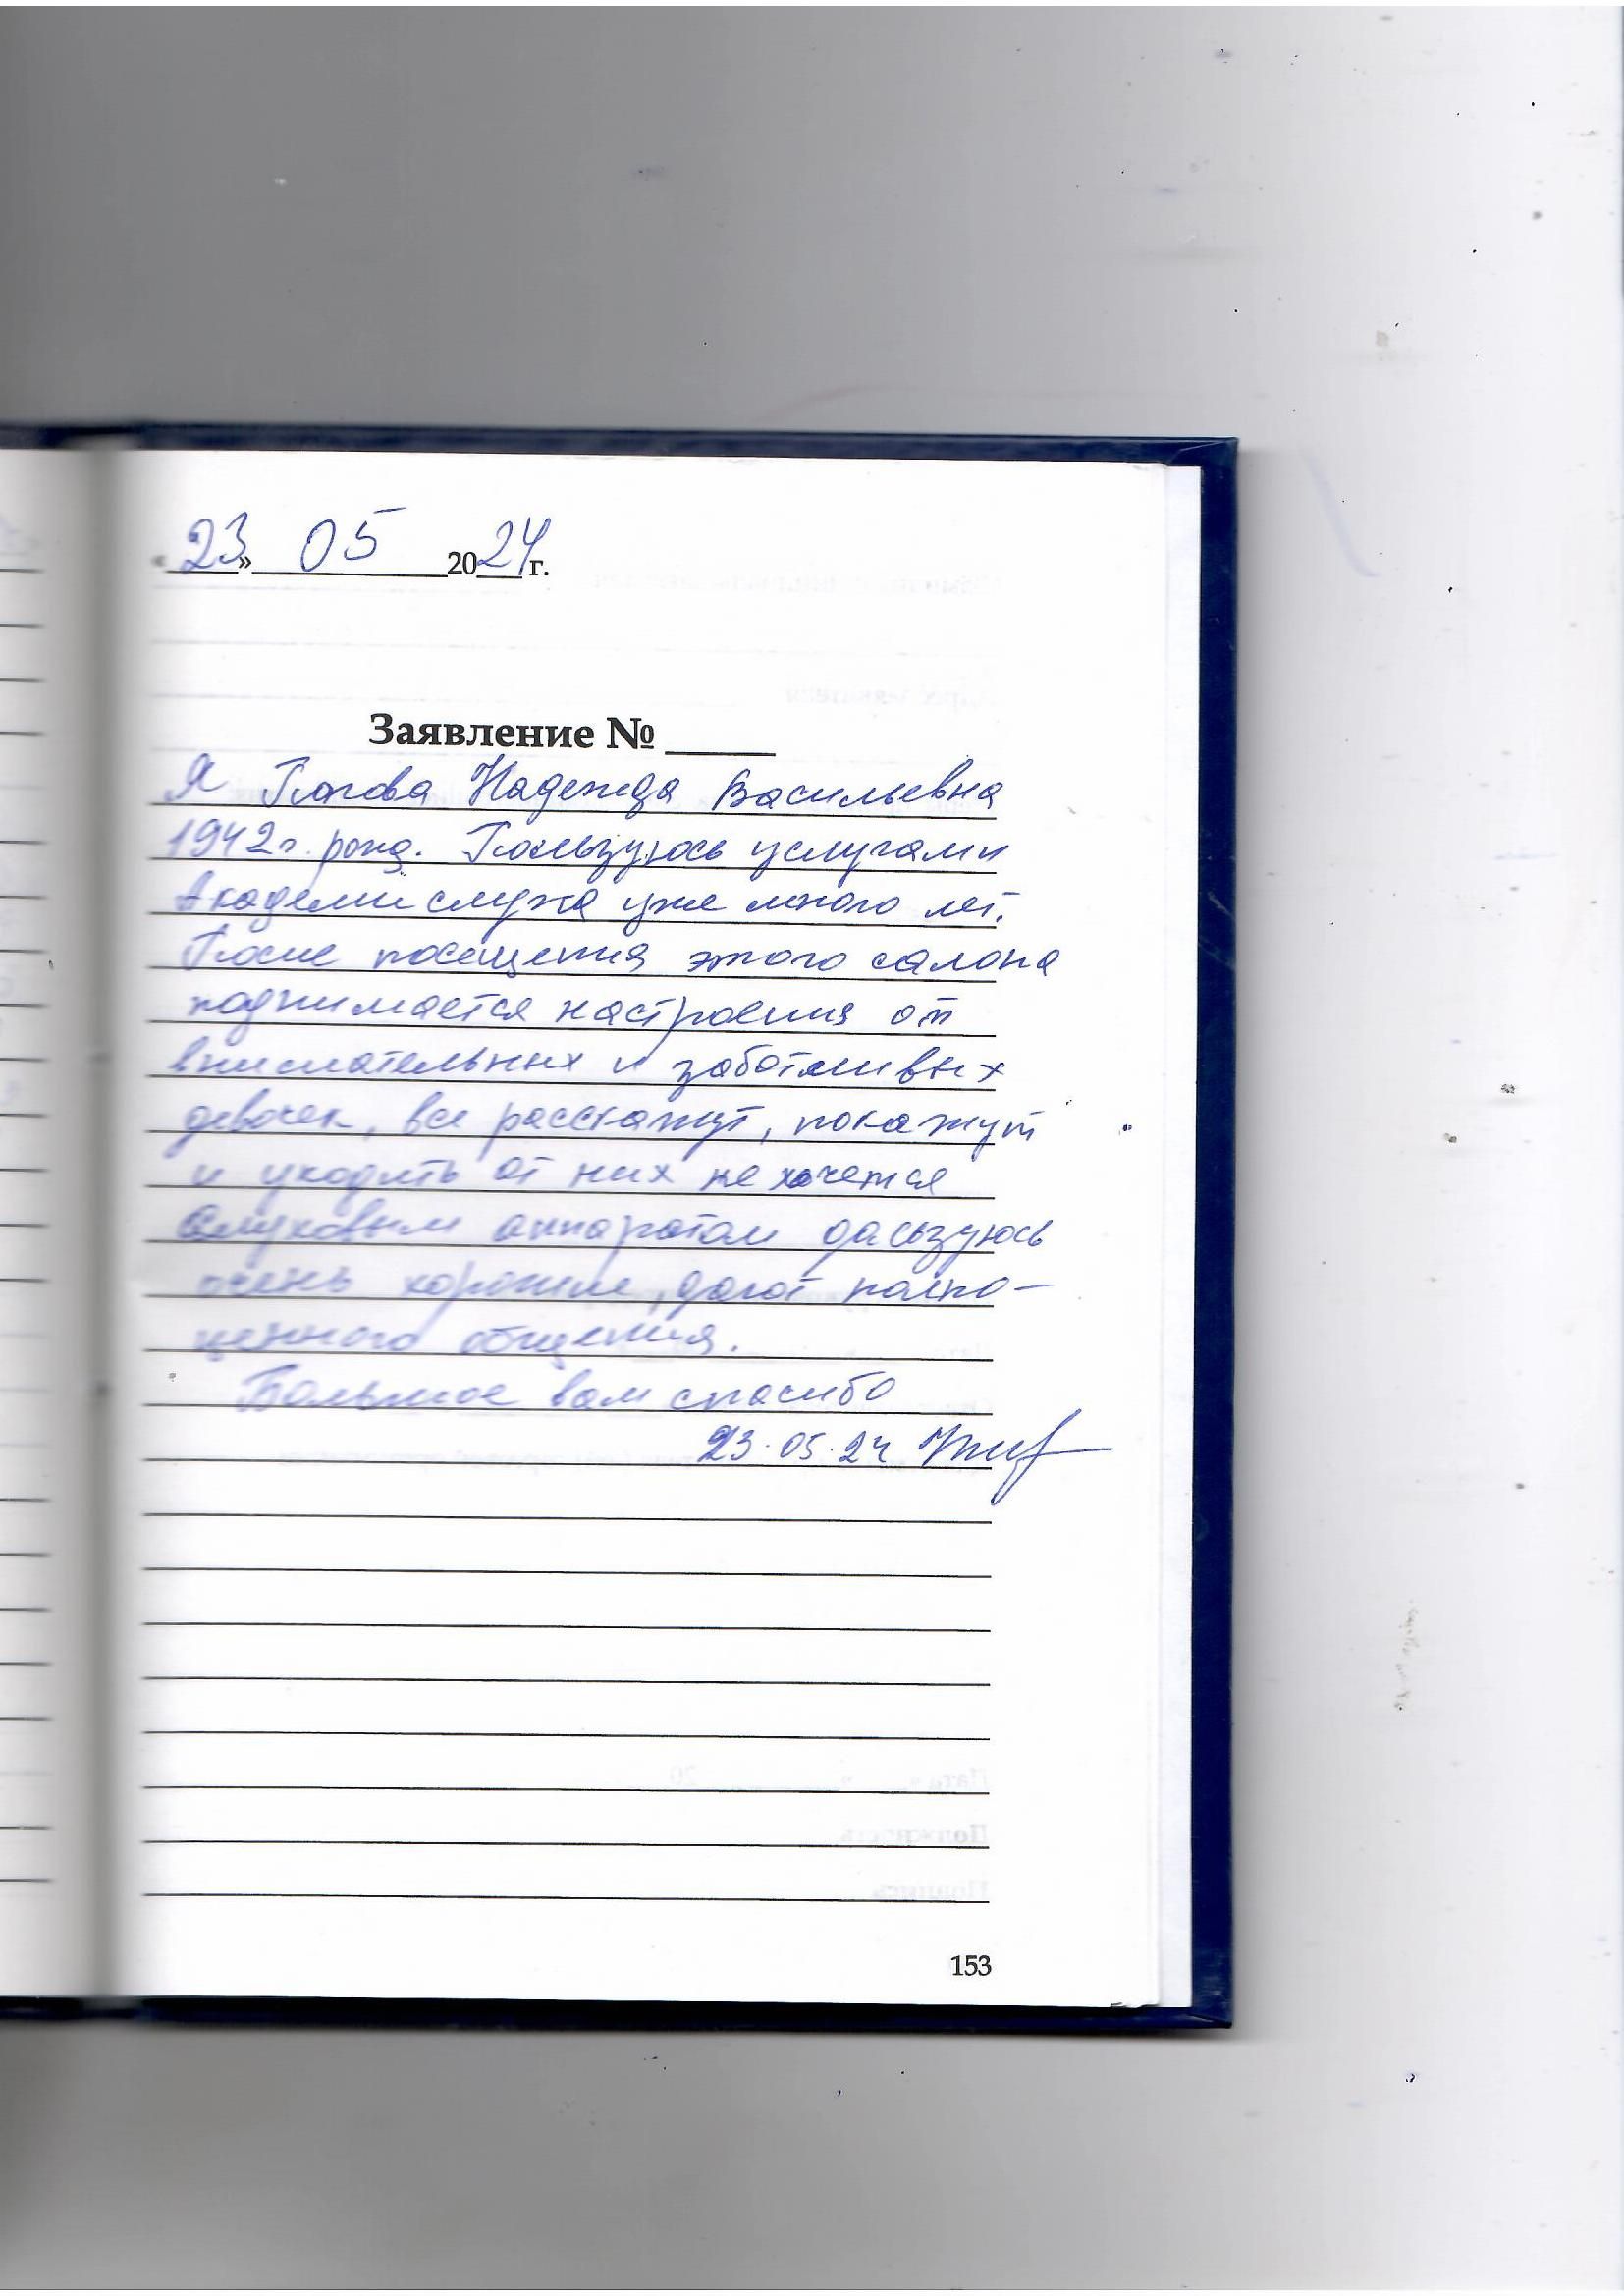 «23» 05 2024 г.
Заявление № ____
Я Надежда Васильевна
1942г. рожд. Пользуюсь услугами
Академии слуха уже много лет.
После посещения этого салона
поднимается настроения от
внимательных и заботливых
девочек, все расскажут, покажут
и уходить от них не хочется
Слуховым аппаратом
очень хорошие, дают полно-
ценного общения.
Большое вам спасибо
23.05.24
153